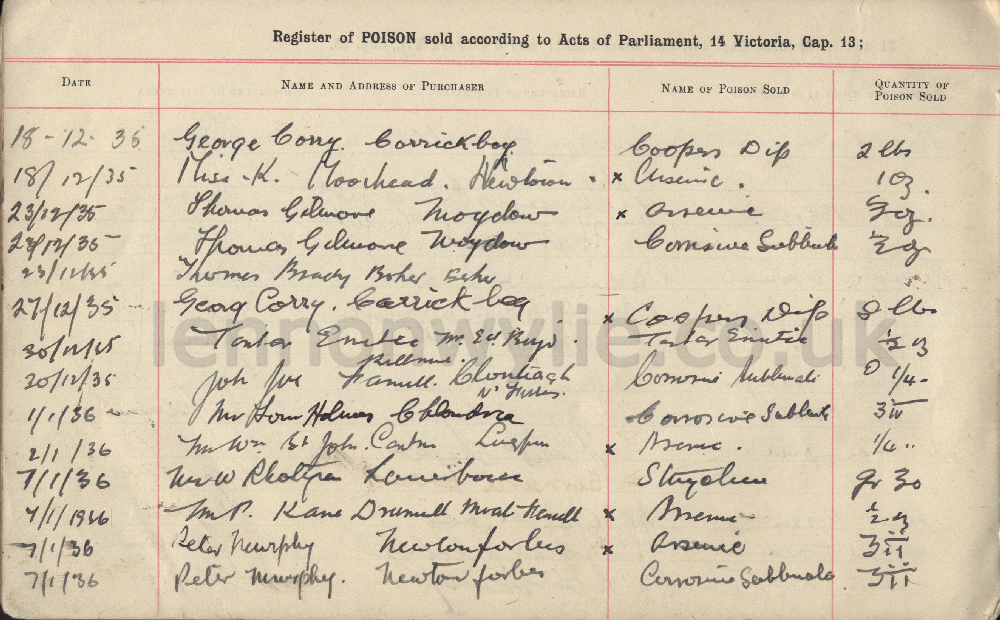 Register of POISON sold according to Acts of Parliament, 14 Victoria, Cap. 13;
DATE NAME AND ADDRESS OF PURCHASER NAME OF POISON SOLD QUANTITY OF POISON SOLD
18-12-35 George Corry. Carrickboy Coopers Dip 2 lbs
18/12/35 Miss K. Moorhead. Newtown. x Arsenic. 1 oz.
23/12/35 Thomas Gilmore Moydow x Arsenic oz.
23/12/35 Thomas Gilmore Moydow Corrosive Sublimate ½ oz
23/12/35 Thomas Brady Boher
27/12/35 Georg Corry. Carrickboy x Coopers Dip lbs
30/12/35 Tartar Emetic Mr. Ed Tartar Emetic ½ oz
lennonwylie.co.uk
30/12/35 Farrell. Clontragh Corrosive Sublimate 1/4
1/1/36 Mr Holmes Corrosive Sublimate
2/1/36 Mr Wm St John. x Arsenic. 1/4
7/1/36 Mr W Strychnine gr 30
7/1/1936 Mr P. Kane x Arsenic ½ oz
7/1/36 Peter Murphy Newtonforbes x Arsenic ʒii
7/1/36 Peter Murphy. Newtonforbes Corrosive Sublimate ʒii